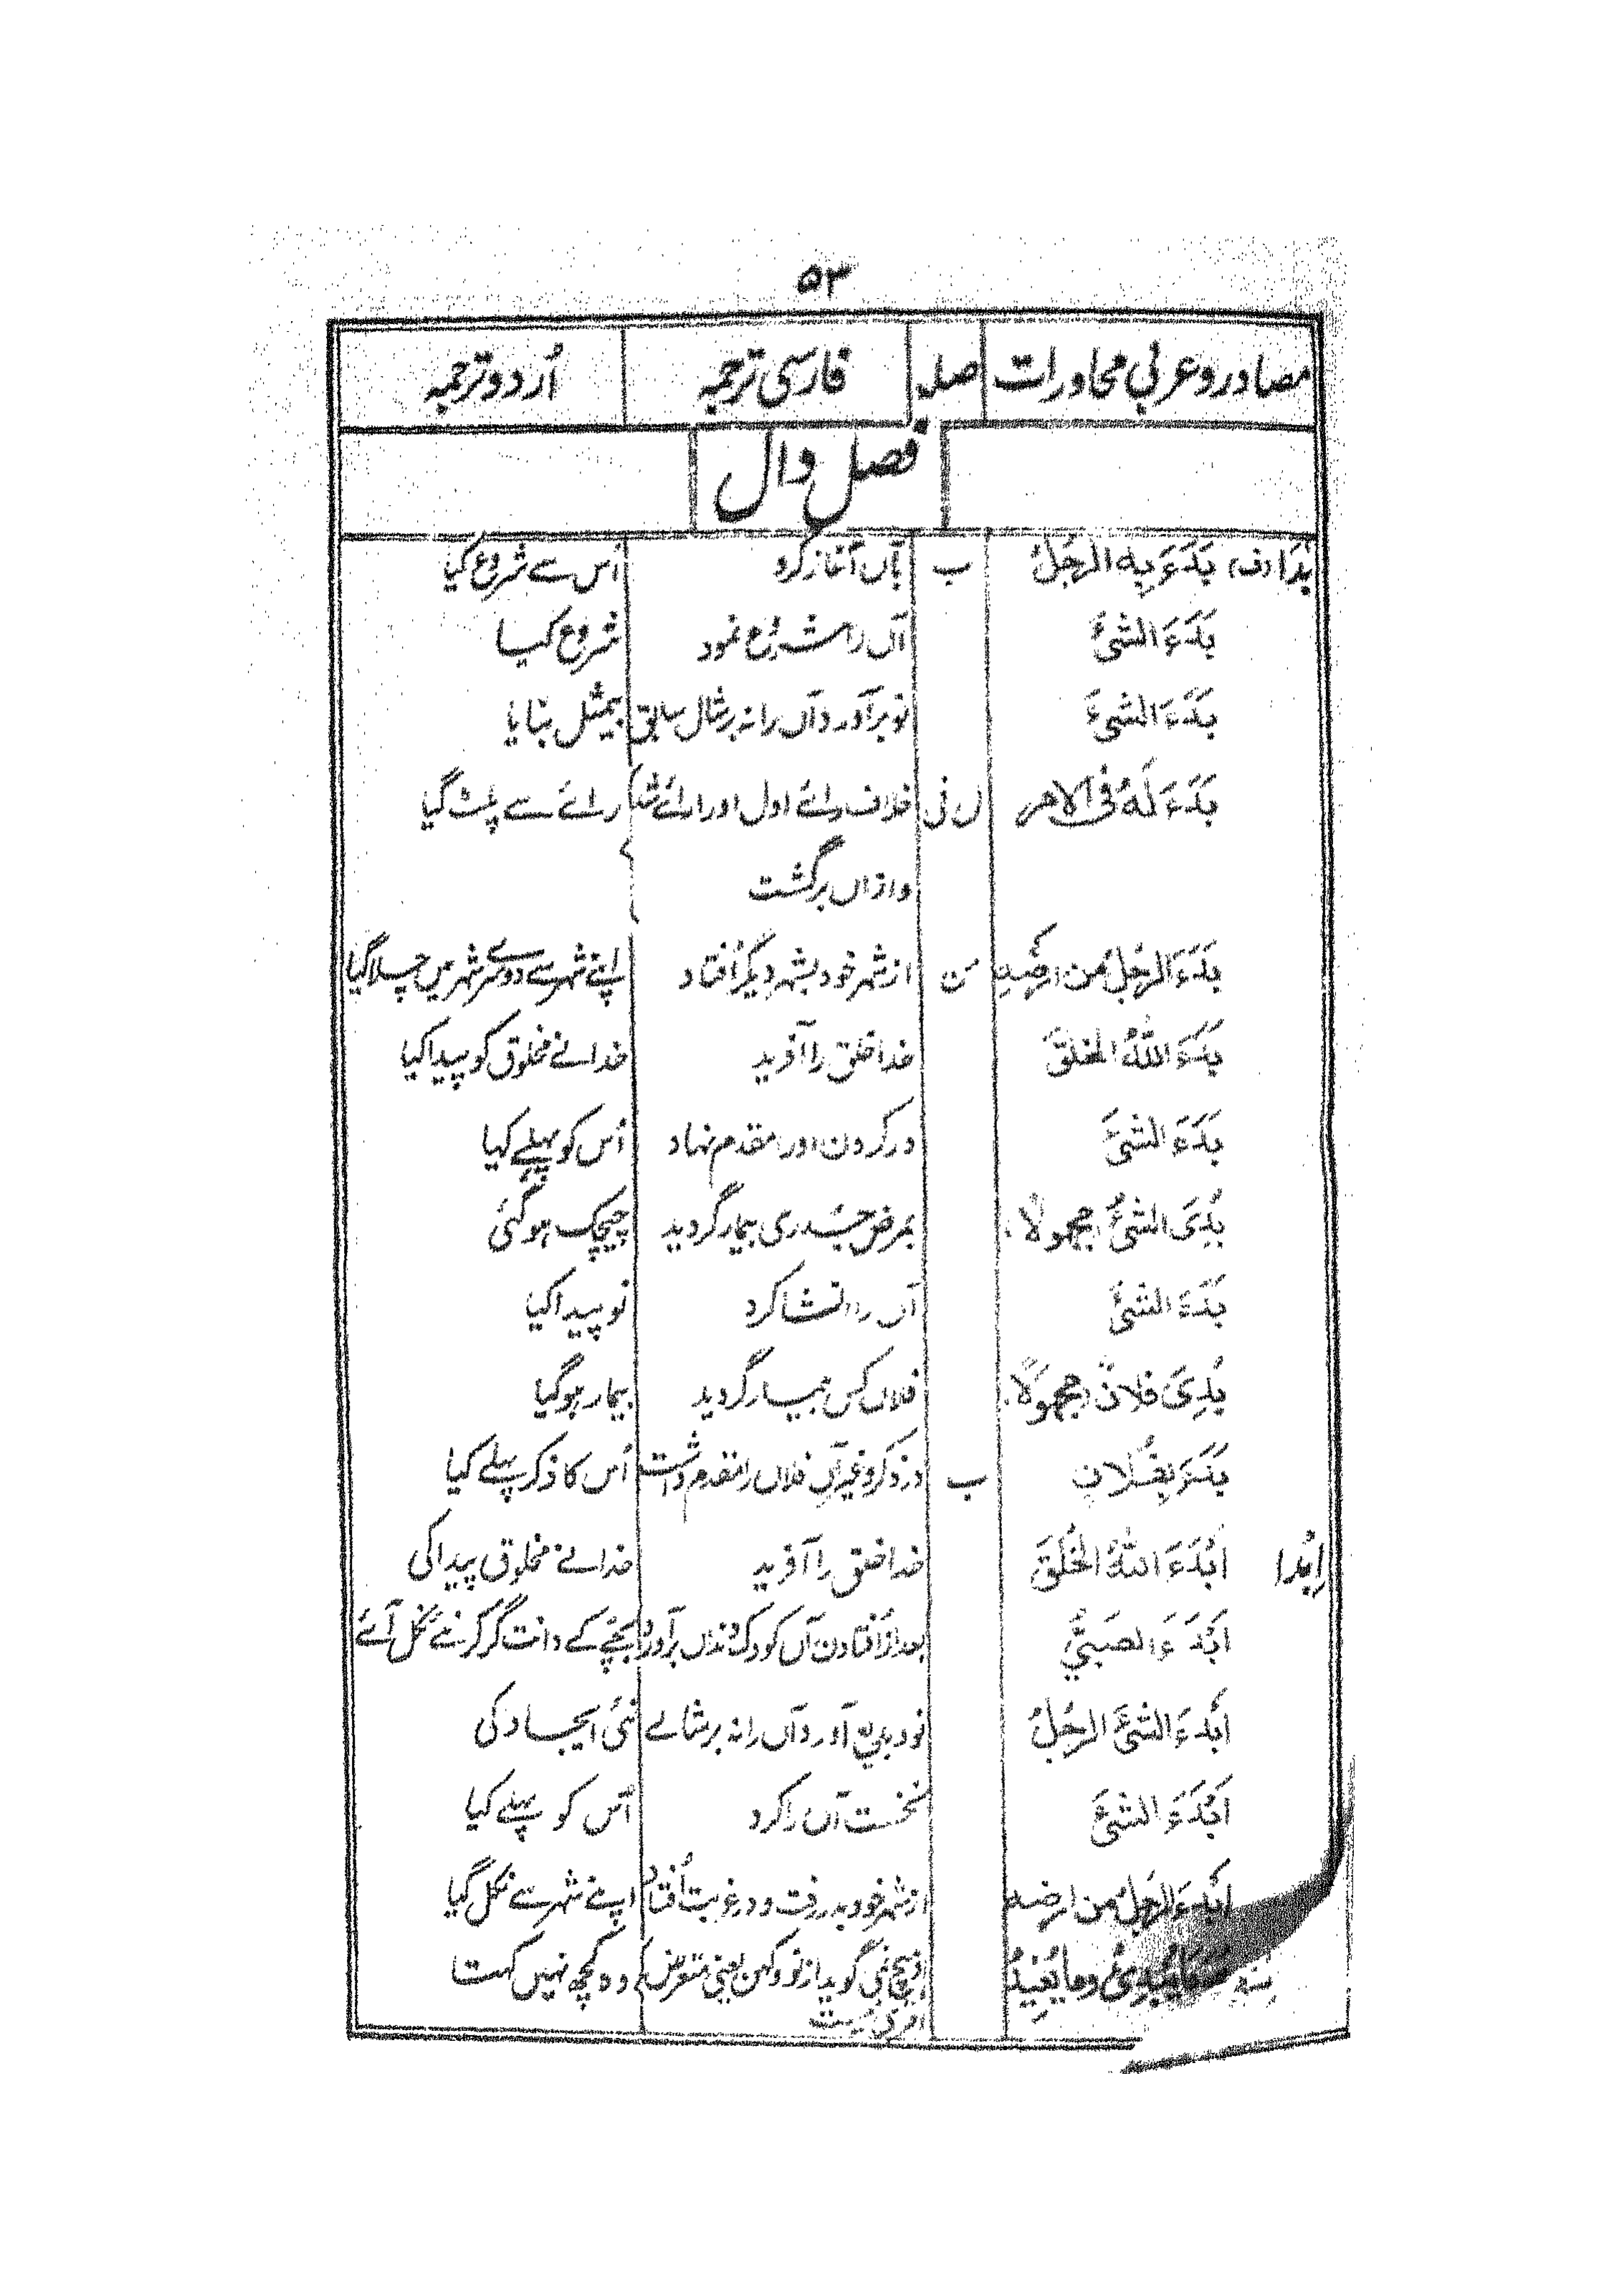 ۵۳
مصادر و عربی محاورات صلہ فارسی ترجمہ اُردو ترجمہ
فصل دال
بُدَا (ف) بَدَءَ بِهِ الرَّجُلُ ب بآں آغاز کرد اُس سے شروع کیا
بَدَءَ الشئُ آں را شروع نمود شروع کیا
بَدَءَ الشئَ نو بر آورد آں را نہ بر مثال سابق بیمثل بنایا
بَدَءَ لَهُ فی الامر ل فی خلاف رائے اول او را رائے شد رائے سے پلٹ گیا
و ازاں برگشت
بَدَءَ الرجُلُ من ارضِهِ من از شہر خود بشہر دیگر اُفتاد اپنے شہر سے دوسرے شہر میں چلا گیا
بَدَءَ اللهُ الخلقَ خدا خلق را آفرید خدا نے مخلوق کو پیدا کیا
بَدَءَ الشئَ در کردن او را مقدم نہاد اُس کو پہلے کیا
بُدِئَ الشئُ (مجهولًا) بمرض جدری بیمار گردید چیچک ہو گئی
بَدَءَ الشئُ آں را انشا کرد نو پیدا کیا
بُدِئَ فلانٌ (مجهولًا) فلاں کس بیمار گردید بیمار ہو گیا
بَدَءَ بِفُلانٍ ب در ذکر و غیر آں فلاں را مقدم داشت اُس کا ذکر پہلے کیا
اِبدا اَبْدَءَ اللهُ الخَلْقَ خدا خلق را آفرید خدا نے مخلوق پیدا کی
اَبْدَءَ الصَبِیُّ بعد از اُفتادن آں کودک دنداں برآورد بچّے کے دانت گر کر نئے نکل آئے
اَبْدَءَ الشئَ الرجُلُ نو و بدیع آورد آں را نہ بر مثالے نئی ایجاد کی
اَبْدَءَ الشئَ نخست آں را کرد اُس کو پہلے کیا
اَبْدَءَ الرجُلُ من ارضه از شہر خود بدر رفت و در غربت اُفتاد اپنے شہر سے نکل گیا
وما یُعِیدُ از ہیچ نمی گوید از نو و کہن یعنی متعرض وہ کچھ نہیں کہتا
امرے نیست